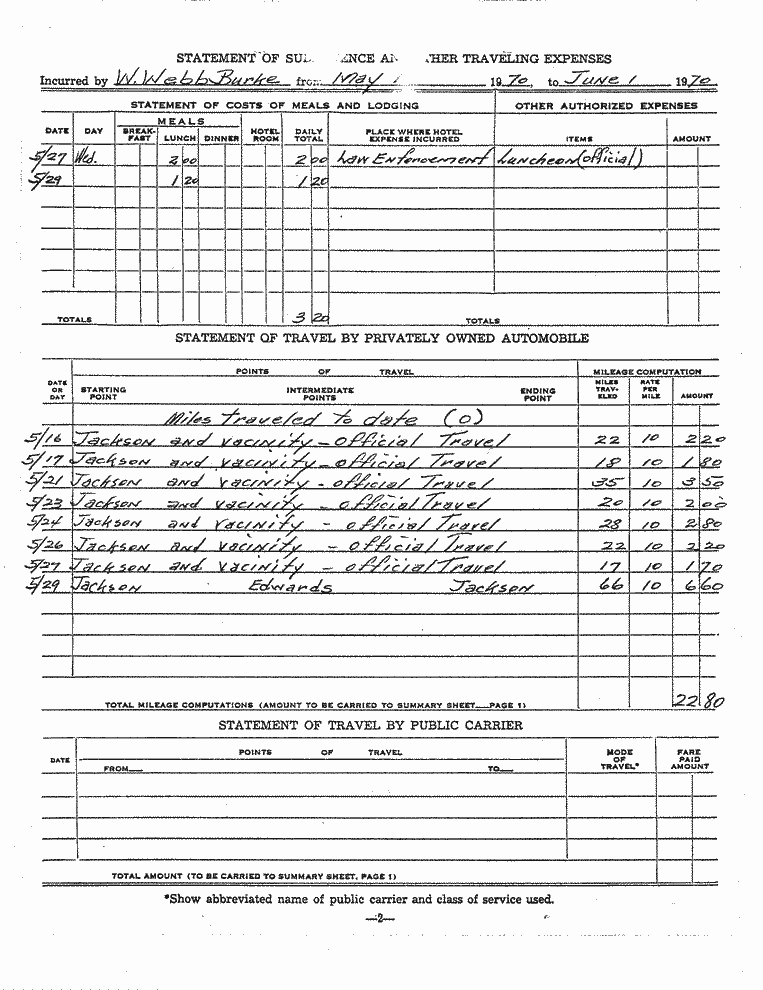 STATEMENT OF SU ENCE A HER TRAVELING EXPENSES
Incurred by W. Webb Burke from May 1970, to June 1 1970
STATEMENT OF COSTS OF MEALS AND LODGING OTHER AUTHORIZED EXPENSES
MEALS
DATE DAY BREAK-FAST LUNCH DINNER HOTEL ROOM DAILY TOTAL PLACE WHERE HOTEL EXPENSE INCURRED ITEMS AMOUNT
5/27 Wed. 2 00 2 00 Law Enforcement Luncheon (official)
5/29 1 20 1 20
TOTALS 3 20 TOTALS
STATEMENT OF TRAVEL BY PRIVATELY OWNED AUTOMOBILE
POINTS OF TRAVEL MILEAGE COMPUTATION
DATE OR DAY STARTING POINT INTERMEDIATE POINTS ENDING POINT MILES TRAV-ELED RATE PER MILE AMOUNT
Miles traveled to date (0)
5/16 Jackson and vacinity - official Travel 22 10 2 20
5/17 Jackson and vacinity - official Travel 18 10 1 80
5/21 Jackson and vacinity - official Travel 35 10 3 50
5/23 Jackson and vacinity - official Travel 20 10 2 00
5/24 Jackson and vacinity - official Travel 28 10 2 80
5/26 Jackson and vacinity - official Travel 22 10 2 20
5/27 Jackson and vacinity - official Travel 17 10 1 70
5/29 Jackson Edwards Jackson 66 10 6 60
TOTAL MILEAGE COMPUTATIONS (AMOUNT TO BE CARRIED TO SUMMARY SHEET PAGE 1) 22 80
STATEMENT OF TRAVEL BY PUBLIC CARRIER
DATE POINTS OF TRAVEL MODE OF TRAVEL* FARE PAID AMOUNT
FROM TO
TOTAL AMOUNT (TO BE CARRIED TO SUMMARY SHEET. PAGE 1)
*Show abbreviated name of public carrier and class of service used.
—2—